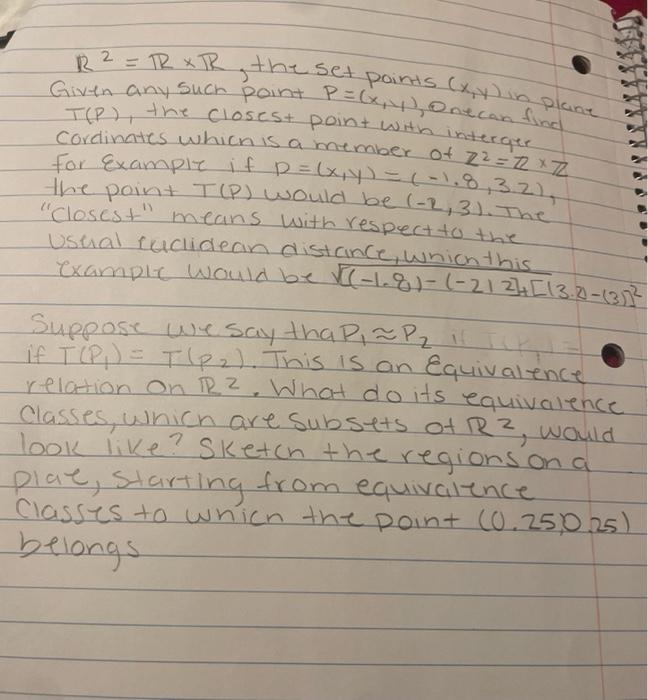 R² = R × R, the set points (x,y) in plane
Given any such point P = (x,y), one can find
T(P), the closest point with interger
Cordinates which is a member of Z² = Z × Z
for Example if P = (x,y) = (-1.8, 3.2),
the point T(P) would be (-2,3). The
"Closest" means with respect to the
Usual euclidean distance, which this
example would be √((-1.8) - (-2)2+[(3.2)-(3)]²
Suppose we say tha P₁ ≈ P₂ if
if T(P₁) = T(P₂). This is an Equivalence
relation on R². What do its equivalence
Classes, which are subsets of R², would
look like? Sketch the regions on a
plae, starting from equivalence
Classes to which the point (0.25,0.25)
belongs